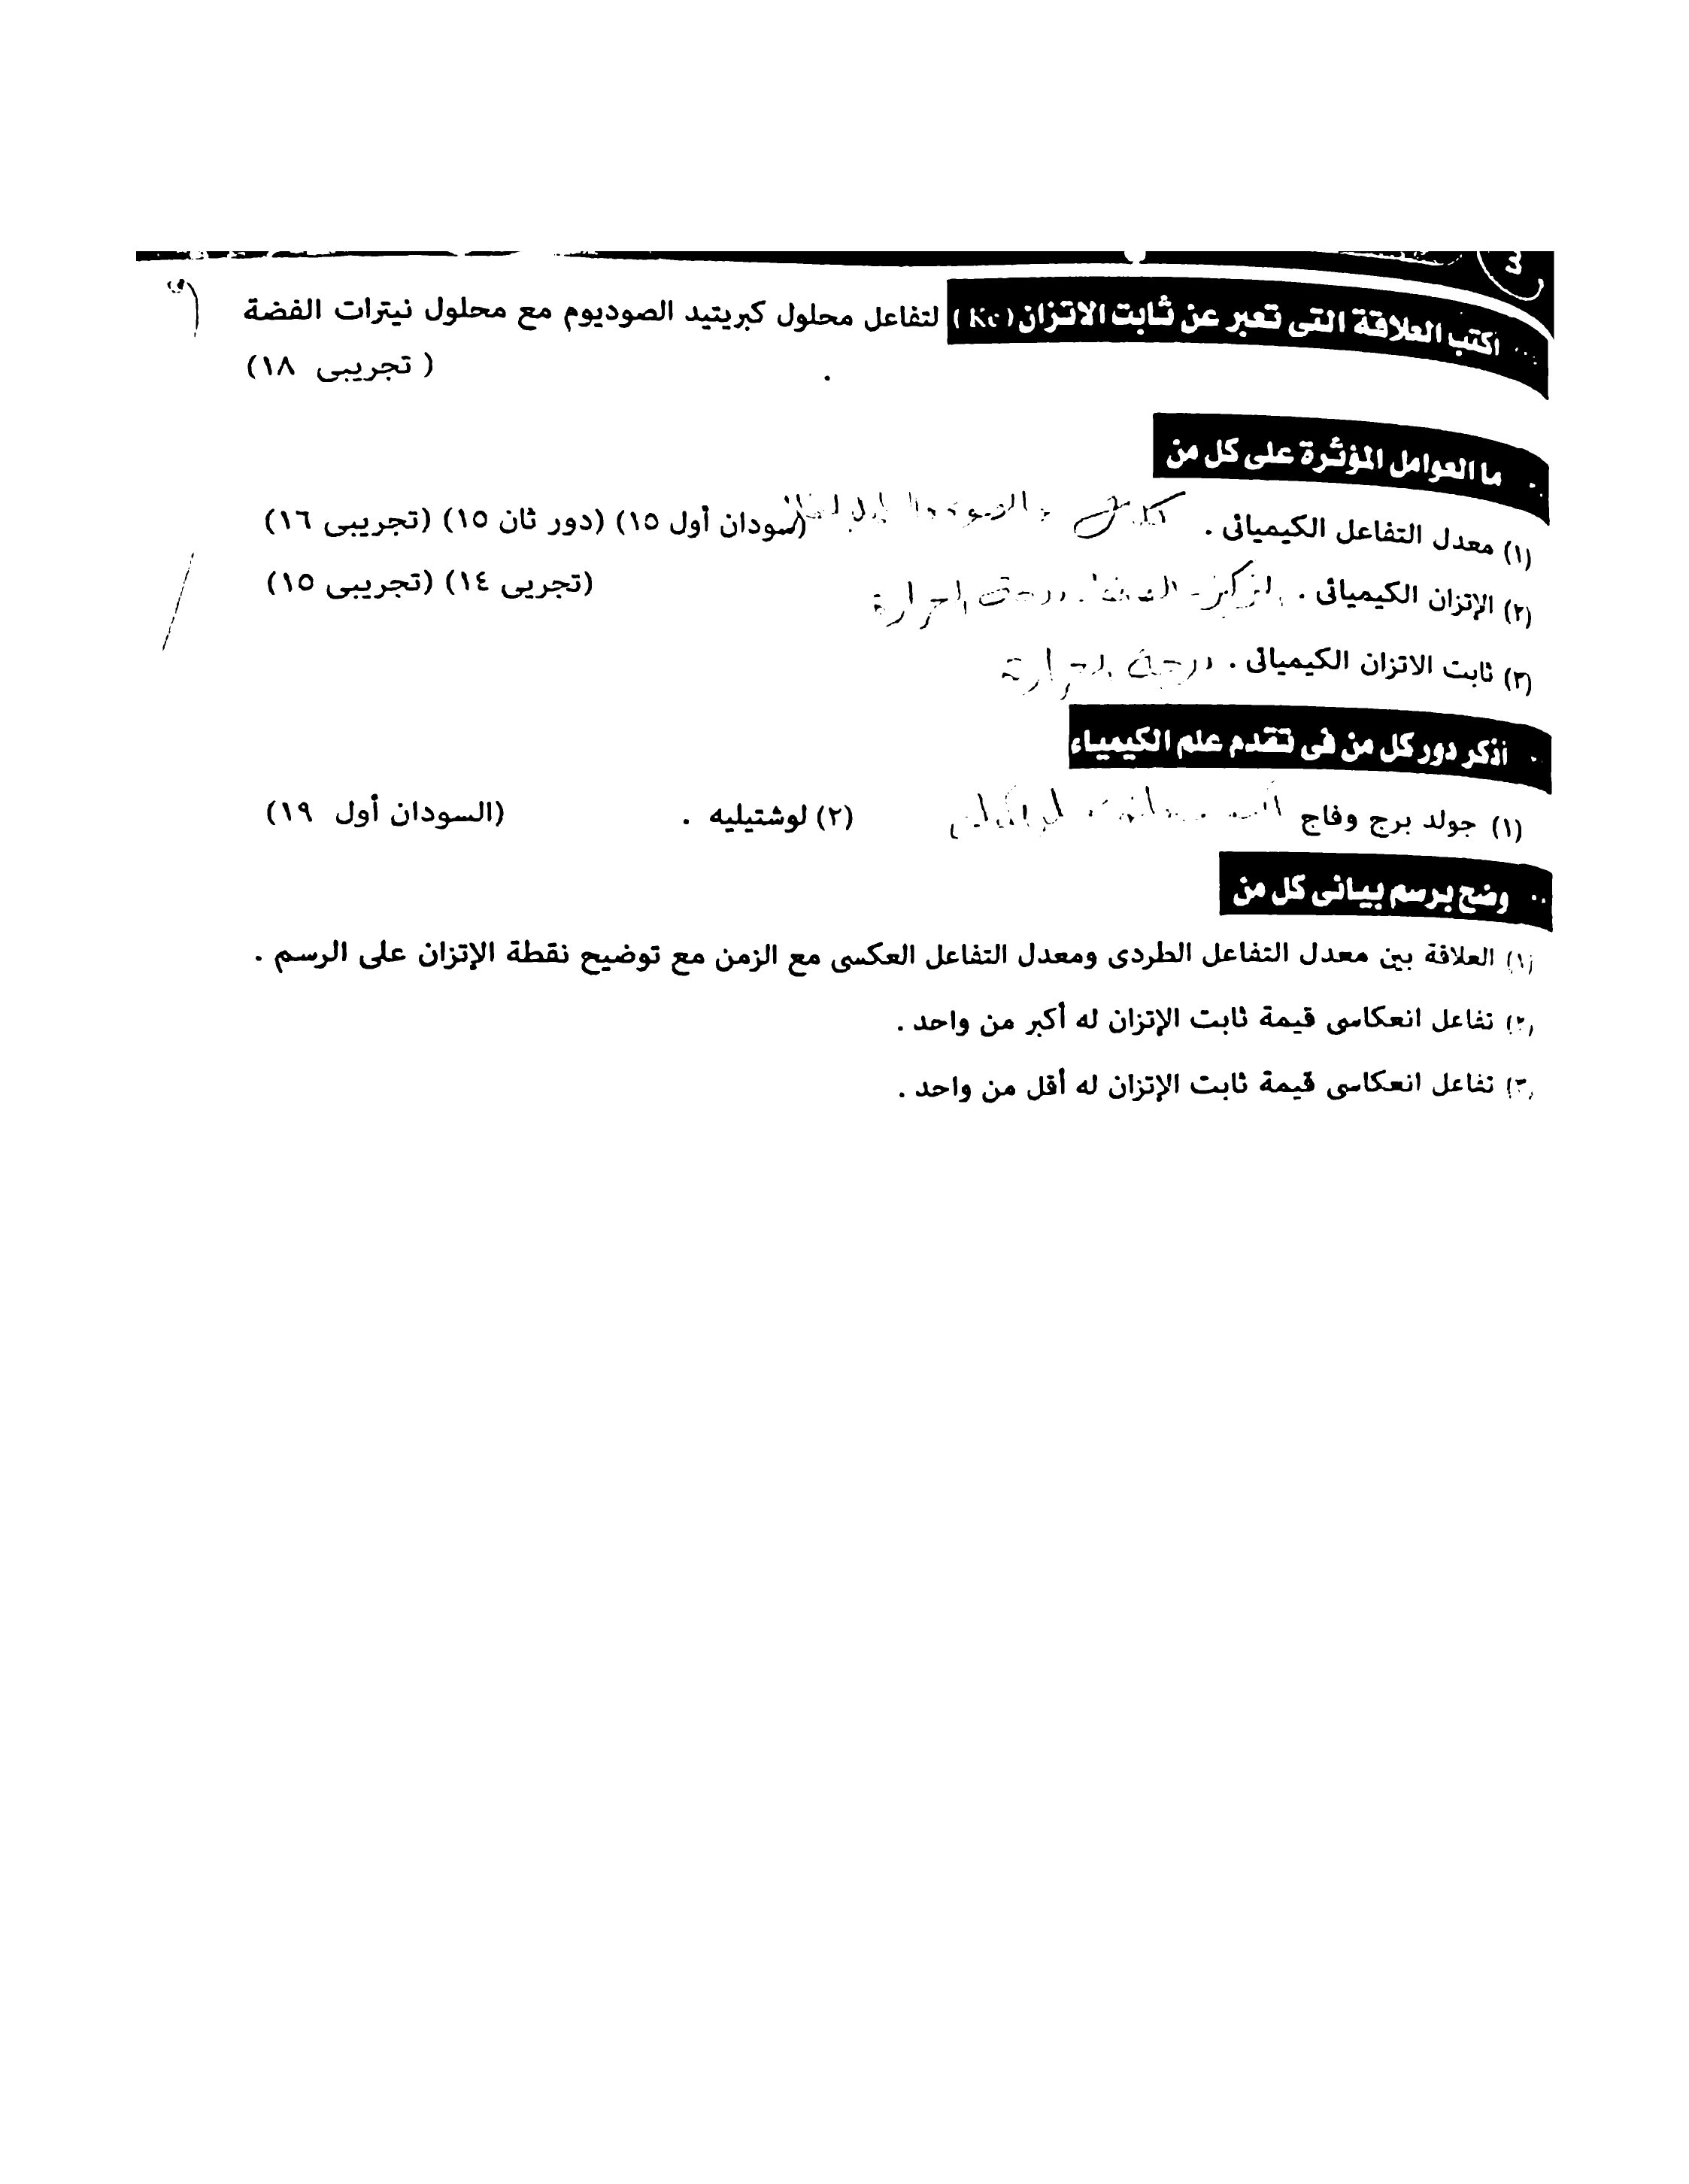 3
اكتب العلاقة التى تعبر عن ثابت الاتزان (Kc) لتفاعل محلول كبريتيد الصوديوم مع محلول نيترات الفضة
( تجريبى ١٨)
ما العوامل المؤثرة على كل من
(١) معدل التفاعل الكيميائى . (سودان أول ١٥) (دور ثان ١٥) (تجريبى ١٦)
(٢) الإتزان الكيميائى . درجة الحرارة (تجريى ١٤) (تجريبى ١٥)
(٣) ثابت الاتزان الكيميائى . درجة الحرارة
أذكر دور كل من فى تقدم علم الكيمياء
(١) جولد برج وفاج (٢) لوشتيليه . (السودان أول ١٩)
وضح برسم بيانى كل من
(١) العلاقة بين معدل التفاعل الطردى ومعدل التفاعل العكسى مع الزمن مع توضيح نقطة الإتزان على الرسم .
(٢) تفاعل انعكاسى قيمة ثابت الإتزان له أكبر من واحد .
(٣) تفاعل انعكاسى قيمة ثابت الإتزان له أقل من واحد .